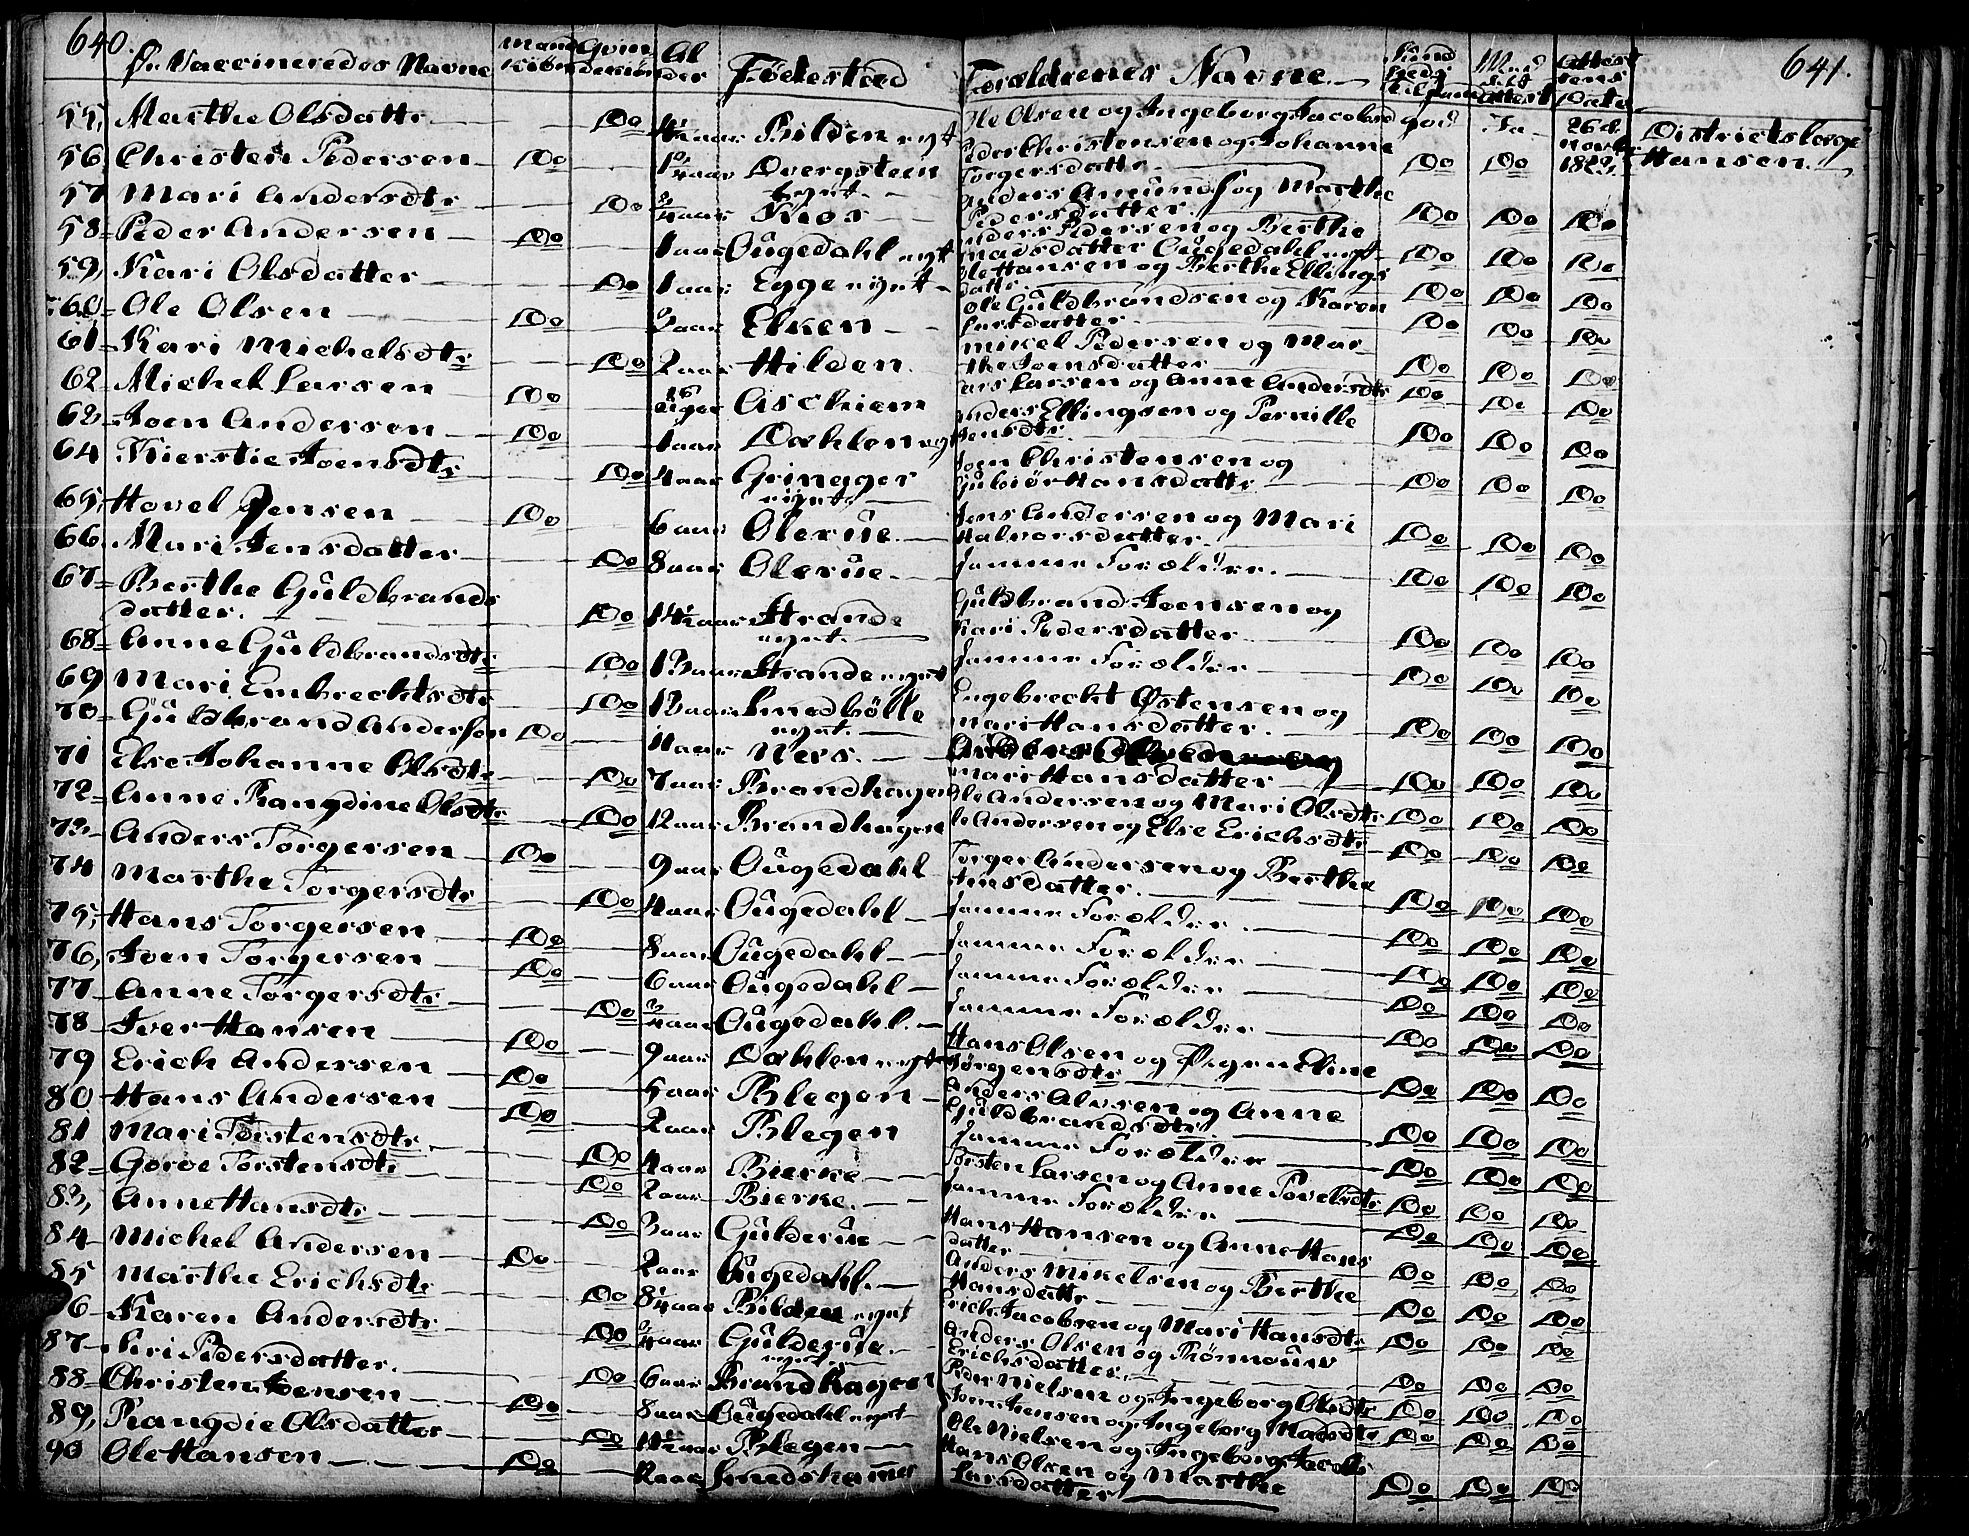 640.
De Vaccineredes Navne Mandkiön Qvindekiön Alder Födested Forældrenes Navne 641.
55, Marthe Olsdattr Do 4½ aar Bilden eyet Ole Olsen og Ingeborg Jacobsd god Ja 26d. Novbr 1823 Districtslæge Hansen.
56, Christen Pedersen Do Dvergsteen eyet Peder Christensen og Johanne Torgersdattr Do Do
57 Mari Andersdtr Do ¾ aar Knos Anders Amunds. og Marthe Pedersdatter Do Do Do
58 Peder Andersen Do 1 aar Ougedahl eyet Anders Pedersen og Berthe Madsdatter Ougedahl eyet Do Do Do
59, Kari Olsdatter Do 1 aar Egge eyet Ole Hansen og Berthe Ellingsdattr Do Do Do
60 Ole Olsen Do 3 aar Elken Ole Guldbrandsen og Karen Larsdatter Do Do Do
61 Kari Michelsdtr Do 2 aar Hilden Mikel Pedersen og Marthe Joensdatter Do Do Do
62 Michel Larsen Do uger Aschiem Lars Larsen og Anne Andersdtr Do Do Do
63 Joen Andersen Do 1 aar Dahlen eyet Anders Ellingsen og Pernille Jensdtr Do Do Do
64 Kierstie Joensdtr Do 4 aar Grinager eyet Joen Christensen og Gubiör Hansdattr Do Do Do
65, Hovel Jensen Do 6 aar Olerue Jens Andersen og Mari Halvorsdatter Do Do Do
66 Mari Jensdatter Do 8 aar Olerue Samme Forældre Do Do Do
67 Berthe Guldbrands
datter. Do 14½ aar Strande eyet Guldbrand Joensen og Kari Pedersdatter Do Do Do
68 Anne Guldbrandsdtr Do 13 aar Strande eyet Samme Forældre Do Do Do
69 Mari Embrechtsdtr Do 13 aar Smedbölle eyet Engebrecht Østensen og Mari Hansdatter. Do Do Do
70 Guldbrand Andersen Do 4 aar Ners. Mari Hansdatter Do Do Do
71 Else Johanne Olsdtr Do 7 aar Brandhagen Ole Andersen og Mari Olsdtr Do Do Do
72 Anne Rangdine Olsdtr Do 12 aar Brandhagen Ole Andersen og Else Erichsdtr Do Do Do
73 Anders Torgersen Do 9 aar Ougedahl Torger Andersen og Berthe Jensdatter. Do Do Do
74 Marthe Torgersdtr Do 4 aar Ougedahl Samme Forældre Do Do Do
75, Hans Torgersen Do 8 aar Ougedahl Samme Forældre Do Do Do
76, Joen Torgersen Do 6 aar Ougedahl Samme Forældre Do Do Do
77 Anne Torgersdtr Do ¾ aar Ougedahl. Samme Forældre Do Do Do
78 Iver Hansen Do 9 aar Dahlen eyet Hans Olsen og Eline Jörgensdtr Do Do Do
79 Erich Andersen Do 5 aar Blegen Anders Olsen og Anne Guldbrandsdtr Do Do Do
80 Hans Andersen Do 2 aar Blegen Samme Forældre Do Do Do
81 Mari Torstensdtr Do 4 aar Bierke Torsten Larsen og Anne Povelsdtr Do Do Do
82 Goroe Torstensdtr Do 2 aar Bierke Samme Forældre Do Do Do
83, Anne Hansdtr Do 3 aar Gulderue Hans Hansen og Anne Hansdatter Do Do Do
84 Michel Andersen Do 2 aar Ougedahl. Anders Mikelsen og Berthe Hansdattr Do Do Do
85 Marthe Erichsdtr Do 8¼ aar Bilden eyet Erich Jacobsen og Mari Hansdtr Do Do Do
86 Karen Andersdtr Do ¾ aar Gulderue eyet Anders Olsen og Rönnouw Erichsdatter Do Do Do
87 Siri Pedersdatter. Do 6 aar Brandhagen Peder Nielsen og Ingeborg Olsdtr Do Do Do
88 Christen Joensen Do 8 aar Ougedahl eyet Joen Jensen og Ingeborg Madsdtr Do Do Do
89, Rangdie Olsdatter Do 14½ aar Blegen Ole Nielsen og Ingeborg Jacobs Do Do Do
90 Ole Hansen Do 12 aar Smedshammer Hans Olsen og Marthe Larsdatter Do Do Do